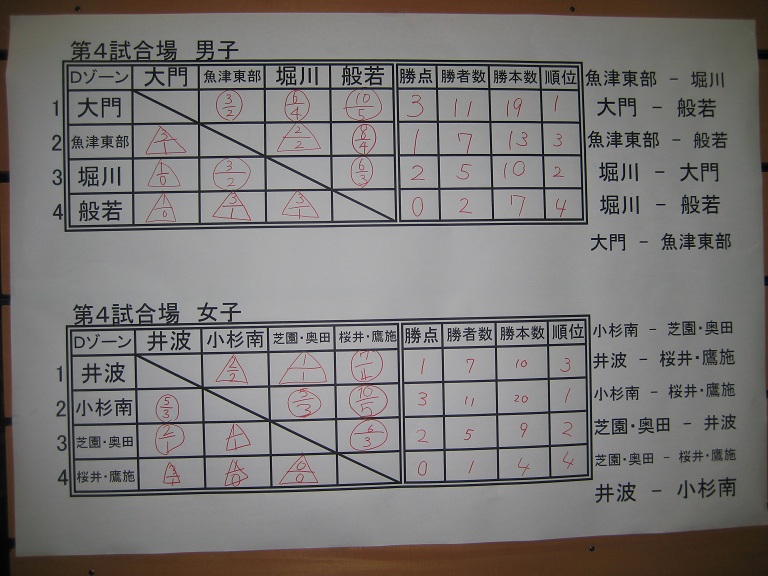 第4試合場 男子
Dゾーン 大門 魚津東部 堀川 般若 勝点 勝者数 勝本数 順位
1 大門 3/2 6/4 10/5 3 11 19 1
2 魚津東部 3/1 2/2 8/4 1 7 13 3
3 堀川 1/0 3/2 6/3 2 5 10 2
4 般若 1/0 3/1 3/1 0 2 7 4
魚津東部 - 堀川
大門 - 般若
魚津東部 - 般若
堀川 - 大門
堀川 - 般若
大門 - 魚津東部
第4試合場 女子
Dゾーン 井波 小杉南 芝園・奥田 桜井・鷹施 勝点 勝者数 勝本数 順位
1 井波 2/2 1/1 7/4 1 7 10 3
2 小杉南 5/3 5/3 10/5 3 11 20 1
3 芝園・奥田 2/1 6/3 2 5 9 2
4 桜井・鷹施 0/0 0 1 4 4
小杉南 - 芝園・奥田
井波 - 桜井・鷹施
小杉南 - 桜井・鷹施
芝園・奥田 - 井波
芝園・奥田 - 桜井・鷹施
井波 - 小杉南